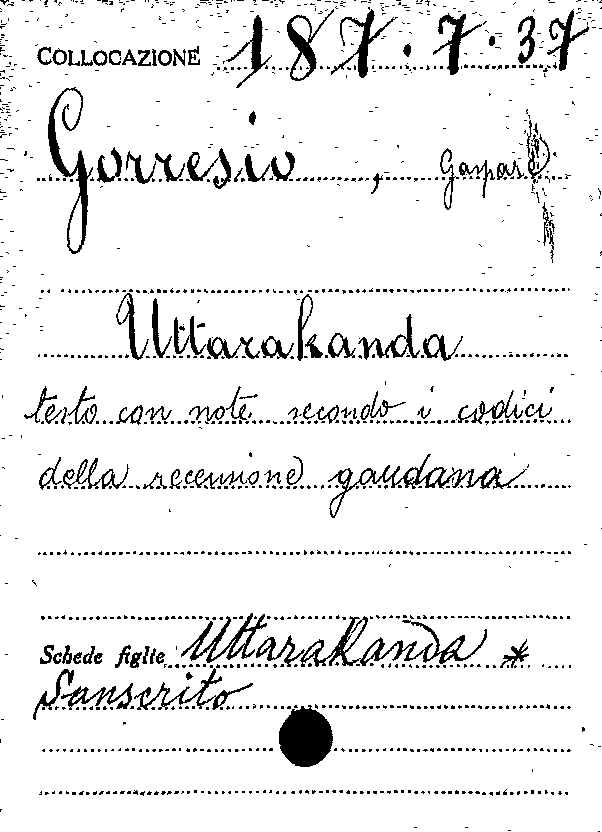 COLLOCAZIONE 187.7.37
Gorresio, Gaspare
Uttarakanda
testo con note secondo i codici
della recensione gaudana
Schede figlie Uttarakanda *
Sanscrito